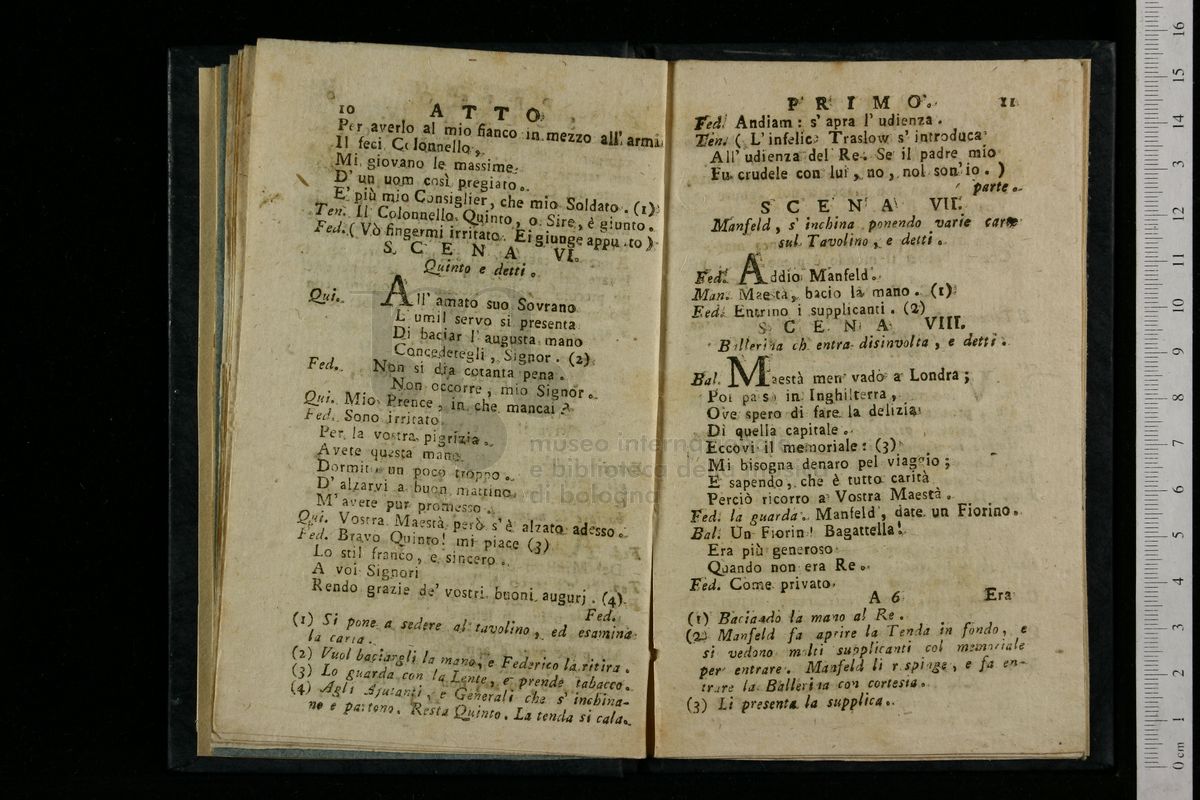 10 ATTO
Per averlo al mio fianco in mezzo all' armi
Il feci Colonnello,
Mi giovano le massime
D' un uom così pregiato.
E' più mio Consiglier, che mio Soldato. (1)
Ten. Il Colonnello Quinto, o Sire, è giunto.
Fed. ( Vò fingermi irritato. Ei giunge appunto )
SCENA VI.
Quinto e detti.
Qui. All' amato suo Sovrano
L' umil servo si presenta
Di baciar l' augusta mano
Concedetegli, Signor. (2)
Fed. Non si dia cotanta pena.
Non occorre, mio Signor.
Qui. Mio Prence, in che mancai?
Fed. Sono irritato
Per la vostra pigrizia.
Avete questa mane
Dormito un poco troppo.
D' alzarvi a buon mattino
M' avete pur promesso.
Qui. Vostra Maestà però s' è alzato adesso.
Fed. Bravo Quinto! mi piace (3)
Lo stil franco, e sincero.
A voi Signori
Rendo grazie de' vostri buoni augurj. (4)
Fed.
(1) Si pone a sedere al tavolino, ed esamina
la carta.
(2) Vuol baciargli la mano, e Federico la ritira.
(3) Lo guarda con la Lente, e prende tabacco.
(4) Agli Ajutanti, e Generali che s' inchina-
no e partono. Resta Quinto. La tenda si cala.
PRIMO. 11
Fed. Andiam: s' apra l' udienza.
Ten. ( L' infelice Traslow s' introduca
All' udienza del Re. Se il padre mio
Fu crudele con lui, no, nol son' io. )
parte.
SCENA VII.
Manfeld, s' inchina ponendo varie carte
sul Tavolino, e detti.
Fed. Addio Manfeld.
Man. Maestà, bacio la mano. (1)
Fed. Entrino i supplicanti. (2)
SCENA VIII.
Ballerina ch' entra disinvolta, e detti.
Bal. Maestà men vado a Londra;
Poi passo in Inghilterra,
Ove spero di fare la delizia
Di quella capitale.
Eccovi il memoriale: (3)
Mi bisogna denaro pel viaggio;
E sapendo, che è tutto carità
Perciò ricorro a Vostra Maestà.
Fed. la guarda. Manfeld, date un Fiorino.
Bal. Un Fiorin! Bagattella!
Era più generoso
Quando non era Re.
Fed. Come privato
A 6 Era
(1) Baciando la mano al Re.
(2) Manfeld fa aprire la Tenda in fondo, e
si vedono molti supplicanti col memoriale
per entrare. Manfeld li respinge, e fa en-
trare la Ballerina con cortesia.
(3) Li presenta la supplica.
museo internazionale
e biblioteca della musica
di bologna
0 cm 1 2 3 4 5 6 7 8 9 10 11 12 13 14 15 16